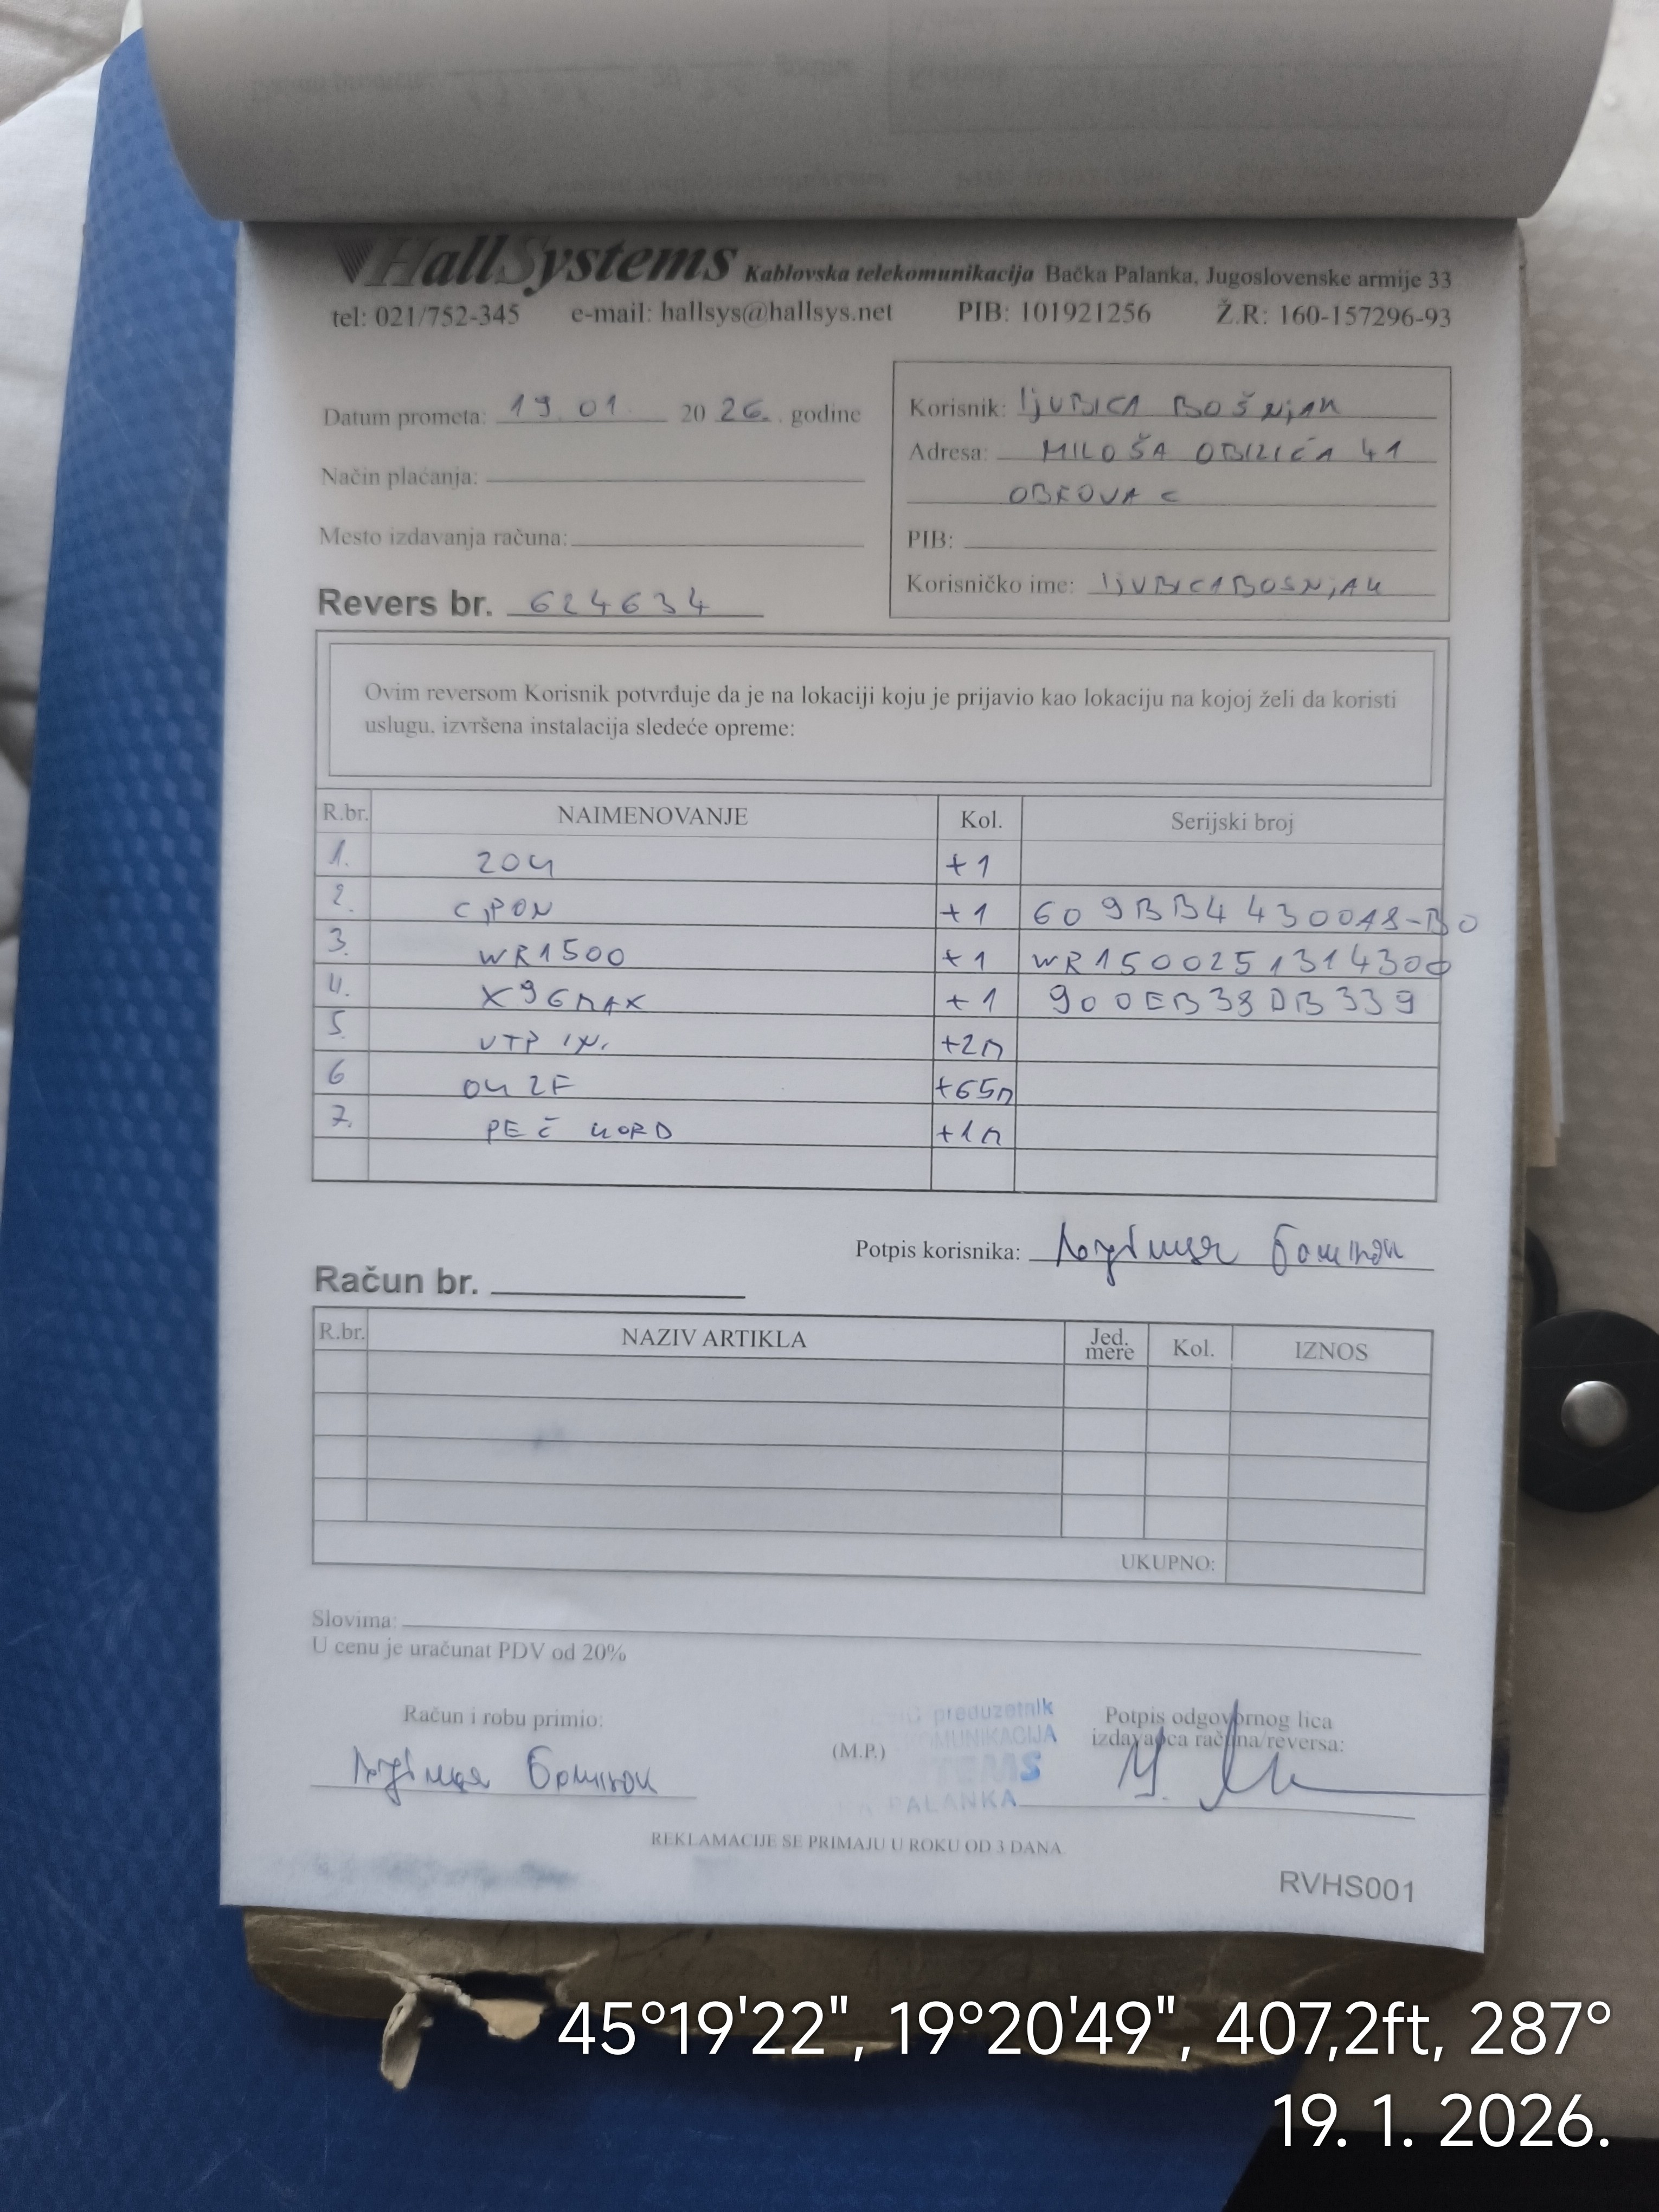 HallSystems Kablovska telekomunikacija Bačka Palanka, Jugoslovenske armije 33
tel: 021/752-345 e-mail: hallsys@hallsys.net PIB: 101921256 Ž.R: 160-157296-93
Datum prometa: 19.01. 2026. godine
Način plaćanja:
Mesto izdavanja računa:
Revers br. 624634
Korisnik: ljUBICA BOŠNjAK
Adresa: MILOŠA OBILIĆA 41
OBROVAC
PIB:
Korisničko ime: ljUBICABOSNjAK
Ovim reversom Korisnik potvrđuje da je na lokaciji koju je prijavio kao lokaciju na kojoj želi da koristi
uslugu, izvršena instalacija sledeće opreme:
R.br. NAIMENOVANJE Kol. Serijski broj
1. ZOK +1
2. GPON +1 609BB44300A8-B0
3. WR1500 +1 WR1500251314300
4. X96MAX +1 900EB38DB339
5. UTP IN. +2m
6 OK 2F +65m
7. PEČ KORD +1m
Potpis korisnika: Љубица Бошњак
Račun br.
R.br. NAZIV ARTIKLA Jed. mere Kol. IZNOS
UKUPNO:
Slovima:
U cenu je uračunat PDV od 20%
Račun i robu primio: Љубица Бошњак
(M.P.)
preduzetnik
PALANKA
Potpis odgovornog lica
izdavaoca računa/reversa:
REKLAMACIJE SE PRIMAJU U ROKU OD 3 DANA
RVHS001
45°19'22", 19°20'49", 407,2ft, 287°
19. 1. 2026.